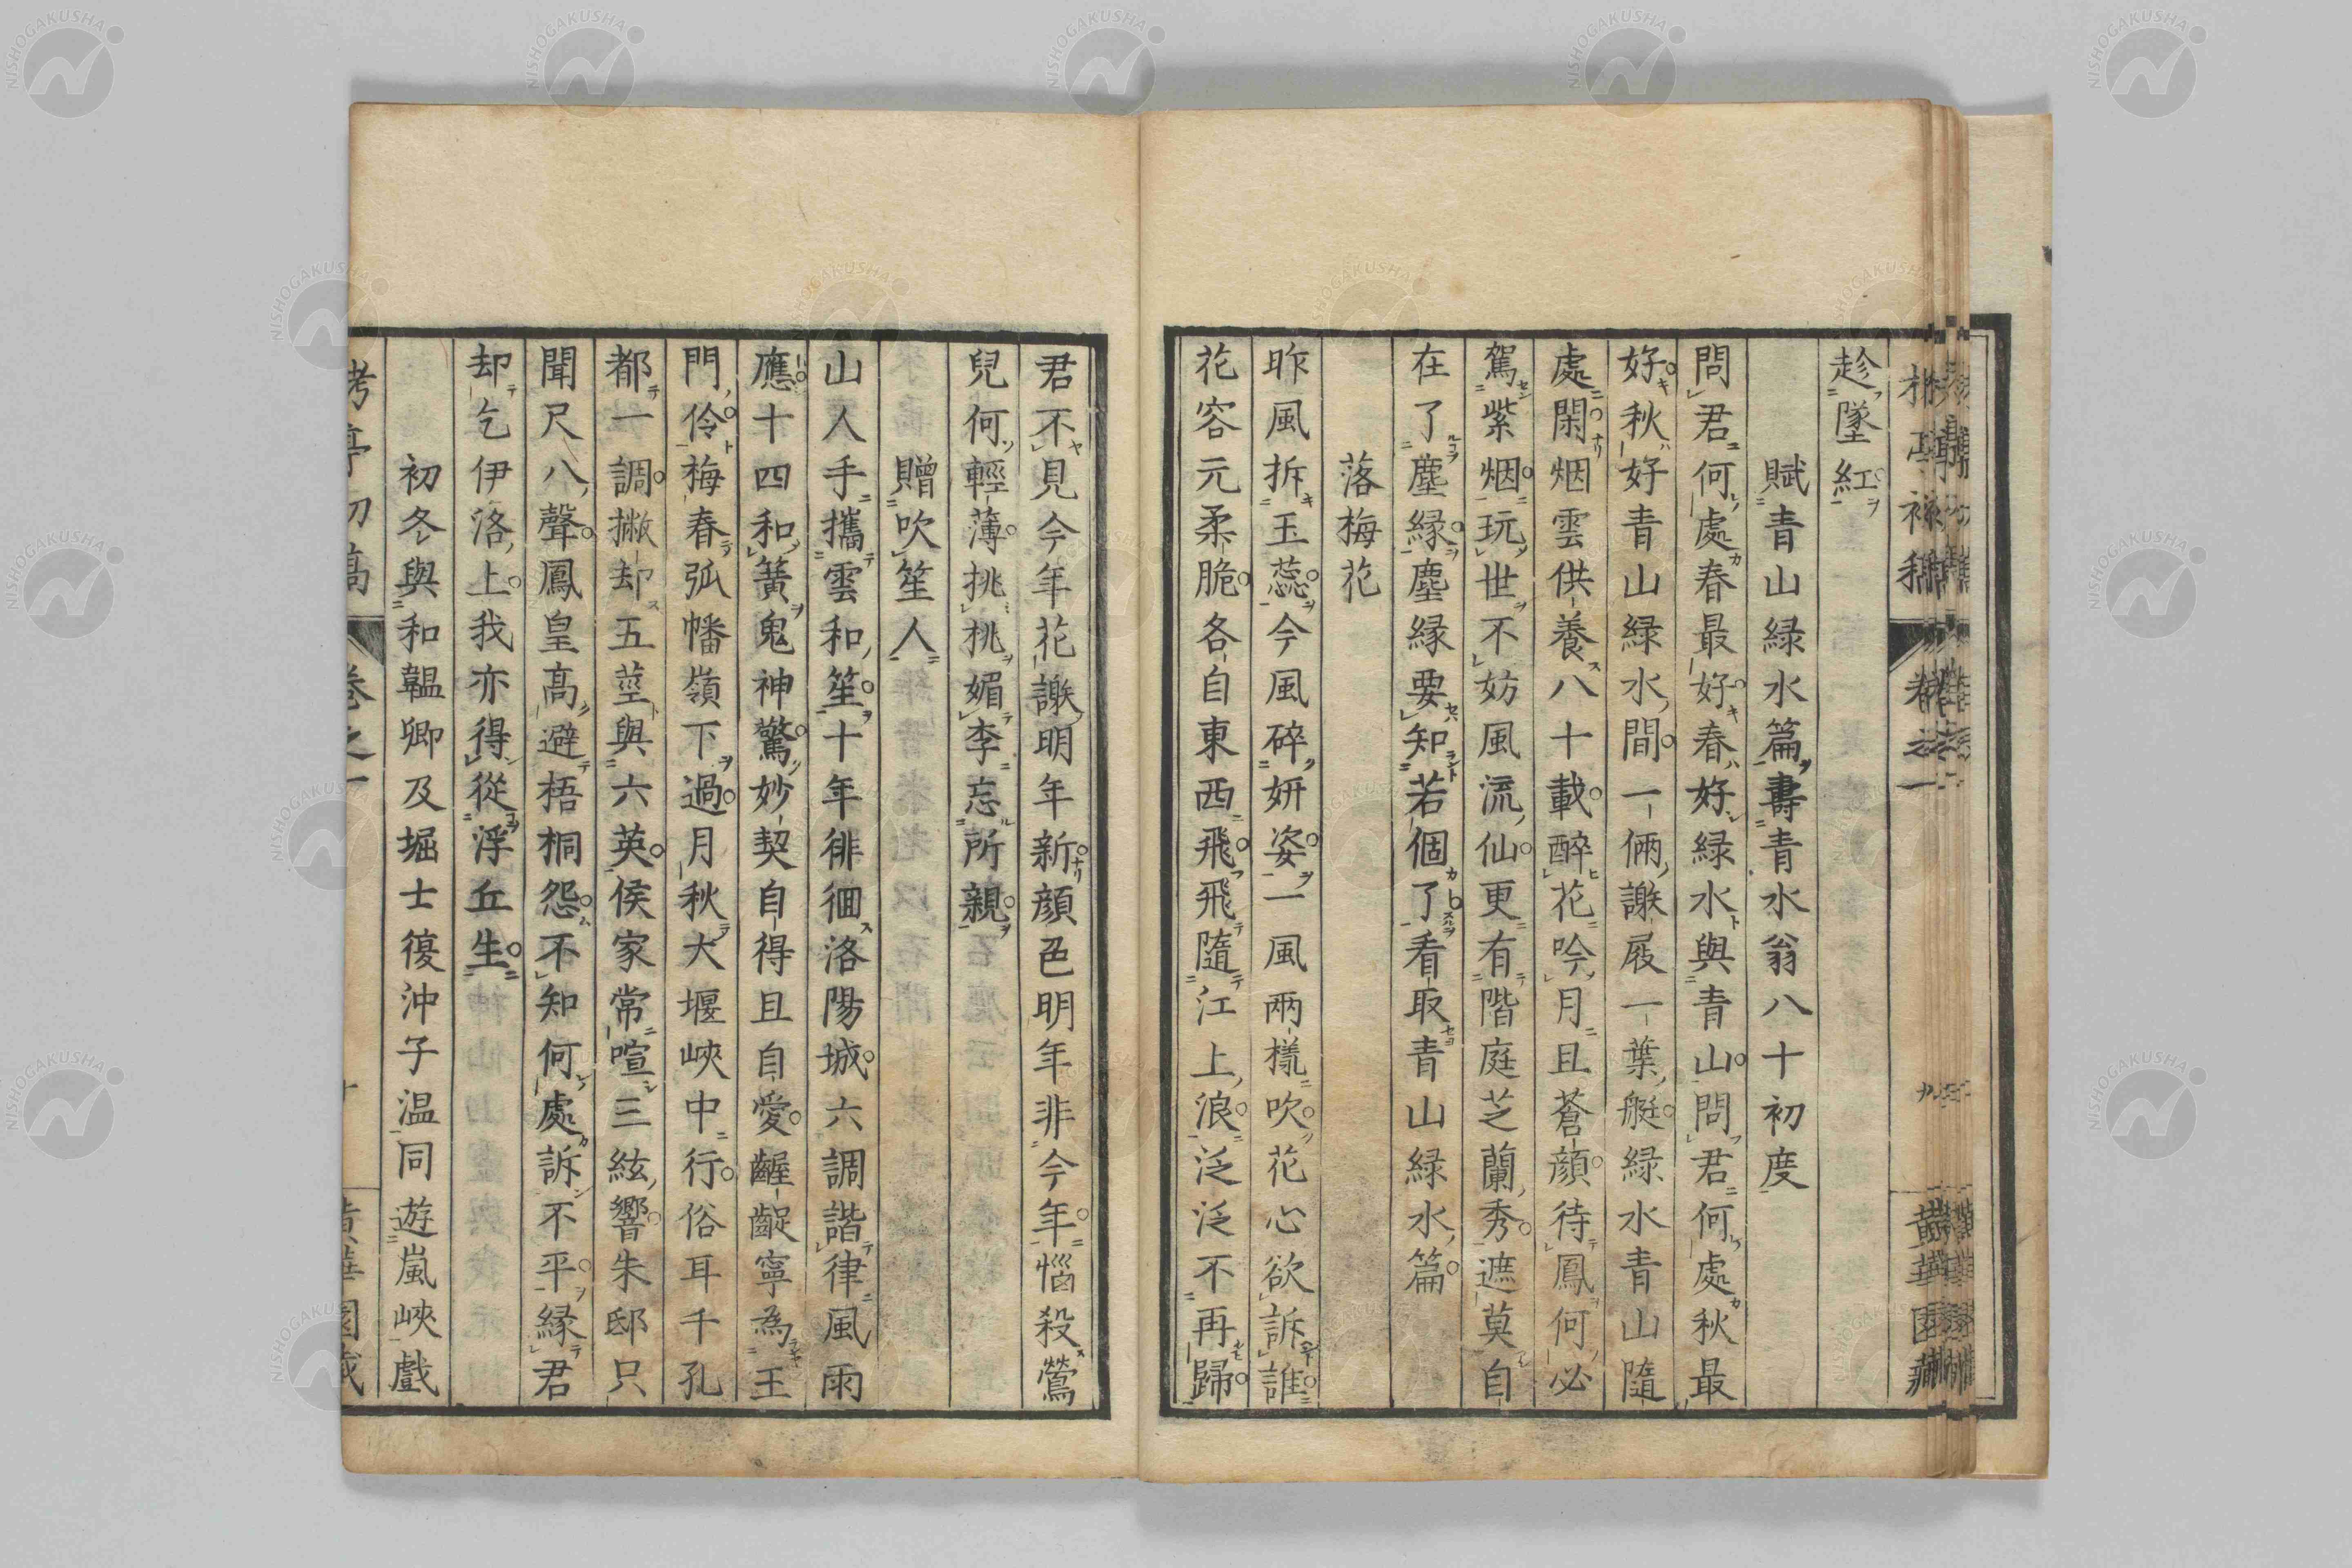 趁墜紅
賦青山緑水篇壽青水翁八十初度
問君何處春最好春好緑水與青山問君何處秋最
好秋好青山緑水間一倆謝屐一葉艇緑水青山隨
處閑烟雲供養八十載醉花吟月且蒼顔待鳳何必
駕紫烟玩世不妨風流仙更有階庭芝蘭秀遮莫自
在了塵縁塵縁要知若個了看取青山緑水篇
落梅花
昨風拆玉蕊今風碎妍姿一風兩樣吹花心欲訴誰
花容元柔脆各自東西飛飛隨江上浪泛泛不再歸
君不見今年花謝明年新顔色明年非今年惱殺鶯
兒何輕薄挑桃媚李忘所親
贈吹笙人
山人手攜雲和笙十年徘徊洛陽城六調諧律風雨
應十四和簧鬼神驚妙契自得且自愛齷齪寧為王
門伶梅春弧幡嶺下過月秋大堰峽中行俗耳千孔
都一調撇却五莖與六英侯家常喧三絃響朱邸只
聞尺八聲鳳皇高避梧桐怨不知何處訴不平縁君
却乞伊洛上我亦得從浮丘生
初冬與和韞卿及堀士復沖子温同遊嵐峽戲
卷之一
NISHOGAKUSHA